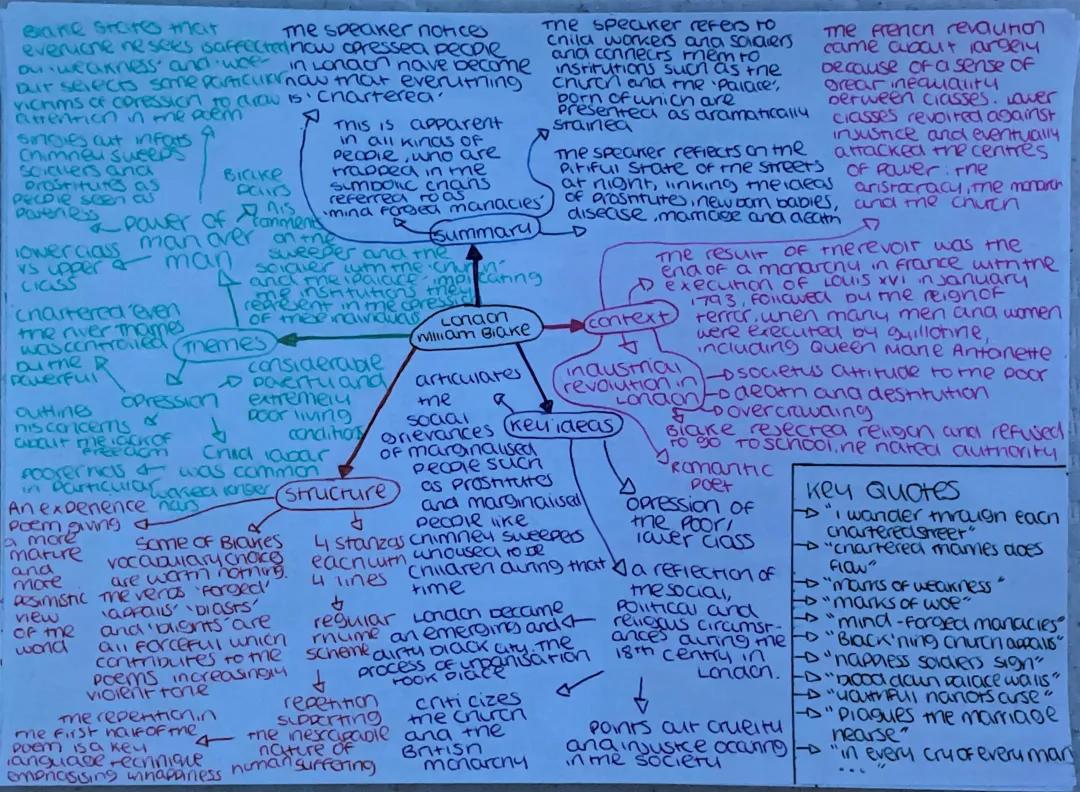 London
William Blake
Summary
The speaker notices
how opressed people
in London have become
now that everything
is 'chartered'
This is apparent
in all kinds of
people, who are
trapped in the
symbolic chans
referred to as
'mind forged manacles'
The speaker refers to
child workers and soldiers
and connects them to
institutions such as the
Church and the 'Palace',
both of which are
presented as dramatically
stained
The speaker reflects on the
Pitiful state of the streets
at night, linking the ideas
of prostitutes, newborn babies,
disease, marriage and death
context
The french revolution
came about largely
because of a sense of
great inequality
between classes. Lower
classes revolted against
injustice and eventually
attacked the centres
of power: the
aristocracy, the monarch
and the church
The result of the revolt was the
end of a monarchy in france with the
execution of Louis XVI in January
1793, followed by the reign of
terror, when many men and women
were executed by guillotine,
including Queen Marie Antoinette
industrial
revolution in
London
societys attitude to the poor
death and destitution
overcrowding
Blake rejected religion and refused
to go to school, he hated authority
Romantic
poet
Key ideas
articulates
the
social
grievances
of marginalised
people such
as prostitutes
and marginalised
people like
chimney sweepers
who used to be
children during that
time
opression of
the poor/
lower class
a reflection of
the social,
political and
religous circumst-
ances during the
18th centry in
London.
London became
an emerging and
dirty black city. The
process of urbanisation
took place
criticizes
the church
and the
British
monarchy
points out cruelty
and injustce occuring
in the society
Structure
An experience
poem giving
a more
mature
and
more
pesimistic
view
of the
world
Some of Blakes
vocabulary choice
are worth noting.
The verbs 'forged'
'appalls' 'blasts'
and 'blights' are
all forceful which
contributes to the
poems increasingly
violent tone
4 stanzas
each with
4 lines
regular
rhyme
scheme
repetition
supporting
the inescapable
nature of
human suffering
The repetition in
the first half of the
poem is a key
language technique
emphasising unhappiness
Themes
power of
man over
man
Blake states that
everyone he sees is affected
by 'weakness' and 'woe'
but selects some particular
victims of opression to draw
attention in the poem
singles out infants
chimney sweeps
soldiers and
prostitutes as
people seen as
lower class
vs upper
class
Blake
pairs
his
comments
on the
sweeper and the
soldier with the 'church'
and the 'palace' implicating
the institutions they
represent in the opression
of these individuals
opression
chartered 'even
the river thames
was controlled
by the
powerful
outlines
his concerns
about the lack of
freedom
considerable
poverty and
extremely
poor living
conditions
child labor
was common
worked longer
hours
poorer kids
in particular
Key Quotes
"I wander through each
chartered street"
"chartered thames does
flow"
"marks of weakness"
"marks of woe"
"mind-forged manacles"
"Black'ning church appalls"
"hapless soldiers sigh"
"blood down palace walls"
"youthful harlots curse"
"plagues the marriage
hearse"
"in every cry of every man
..."